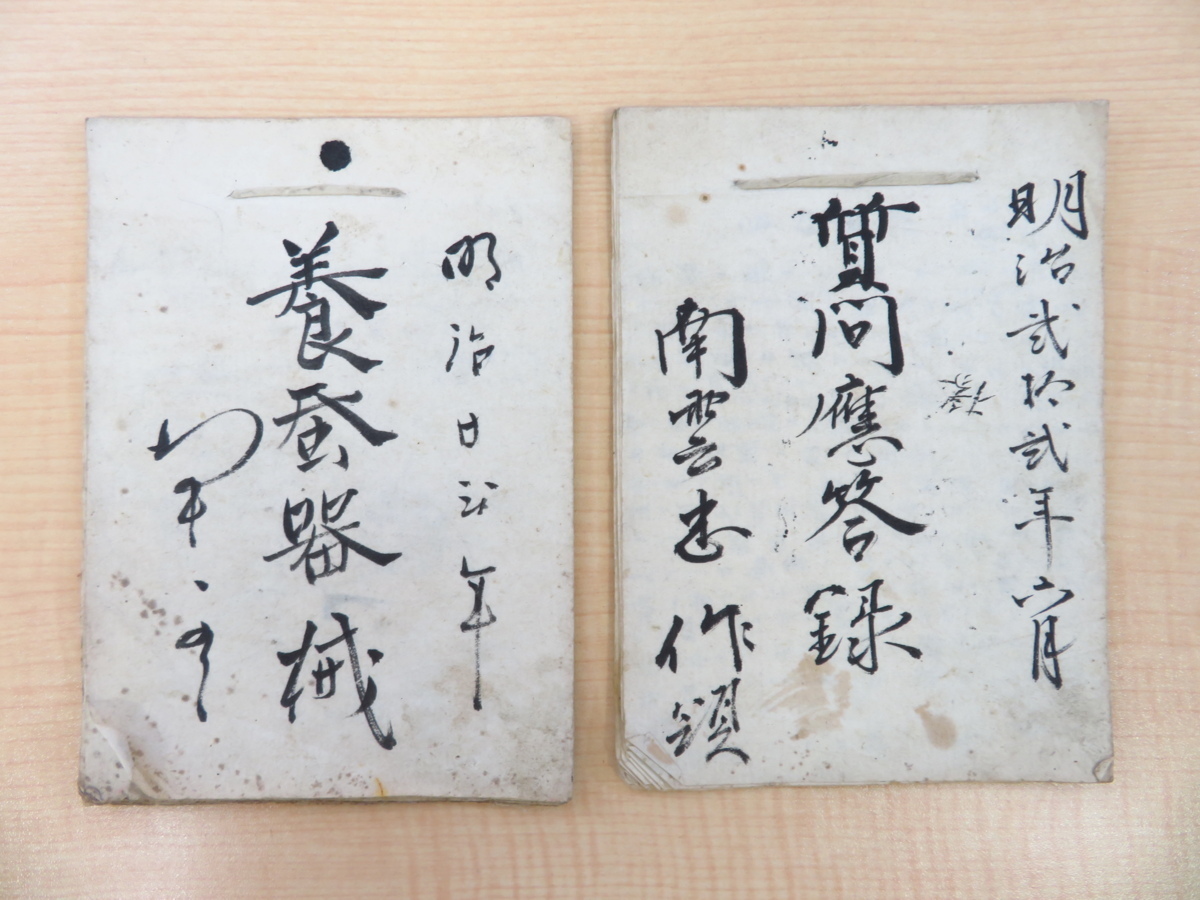 明治廿二年
養蚕器械
明治弐拾弐年六月
質問應答録
南雲忠作頭